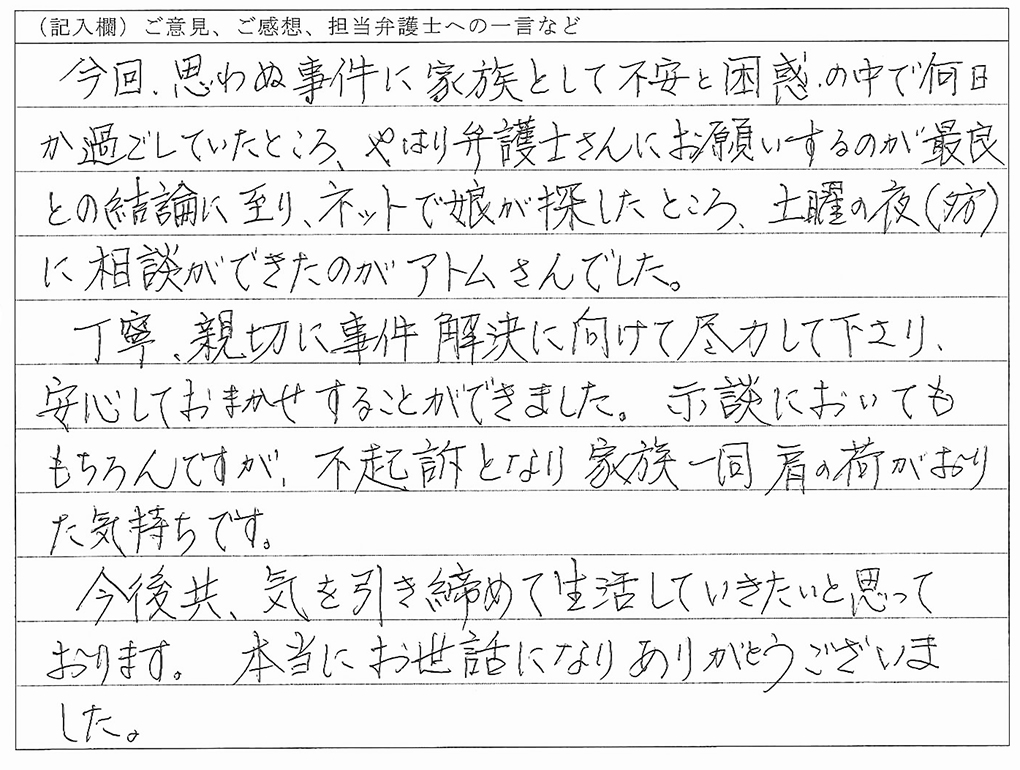 （記入欄）ご意見、ご感想、担当弁護士への一言など
今回、思わぬ事件に家族として不安と困惑の中で何日
か過ごしていたところ、やはり弁護士さんにお願いするのが最良
との結論に至り、ネットで娘が探したところ、土曜の夜（夕方）
に相談ができたのがアトムさんでした。
丁寧、親切に事件解決に向けて尽力して下さり、
安心しておまかせすることができました。示談においても
もちろんですが、不起訴となり家族一同肩の荷がおり
た気持ちです。
今後共、気を引き締めて生活していきたいと思って
おります。本当にお世話になりありがとうございま
した。